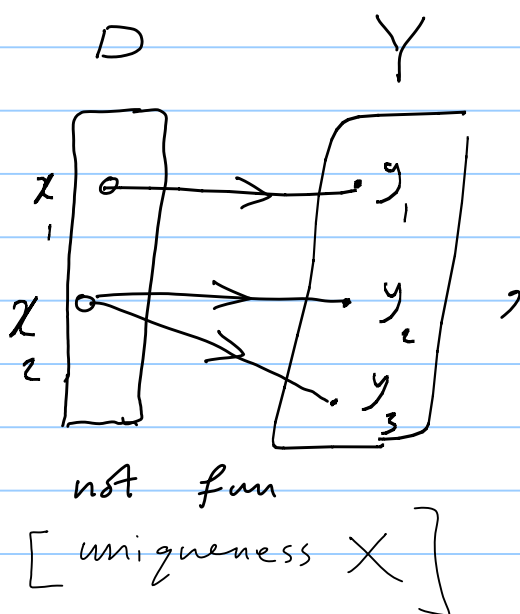 D Y
x₁ y₁
x₂ y₂ ,
y₃
not fun
[uniqueness X]